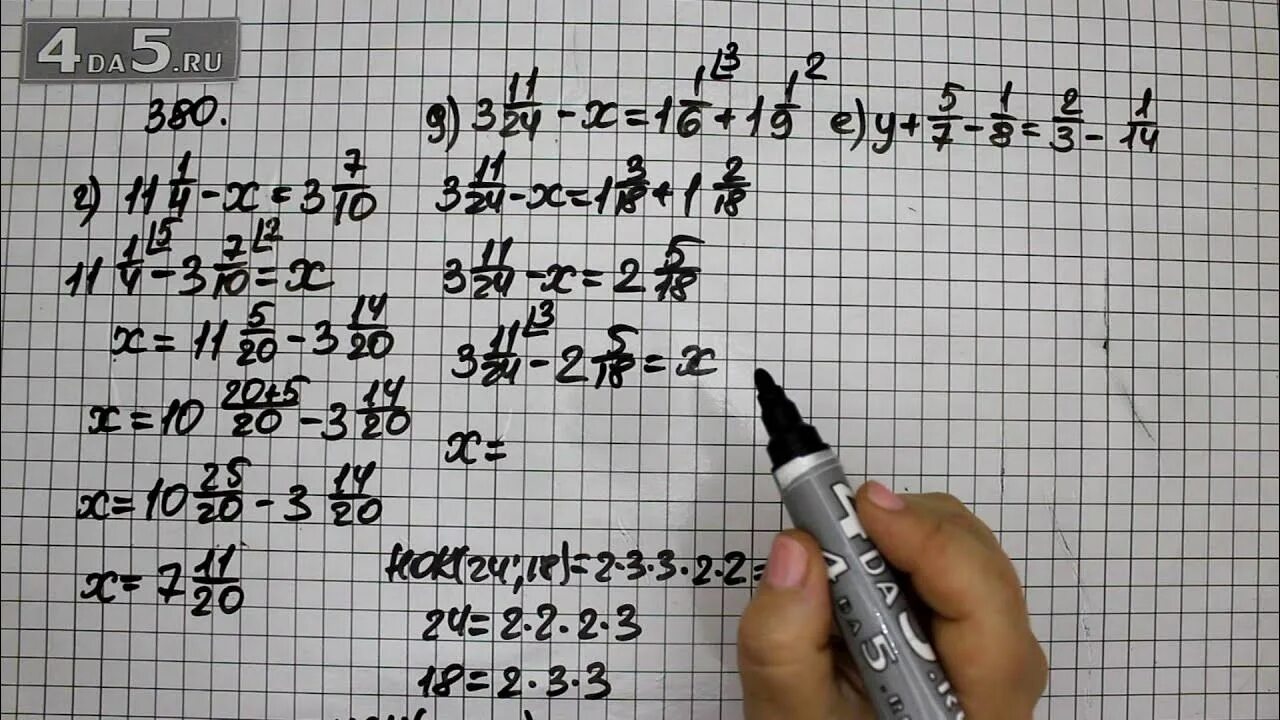 4DA5.RU
380.
г) 11 1/4 - x = 3 7/10
11 1/4 ⌊5 - 3 7/10 ⌊2 = x
x = 11 5/20 - 3 14/20
x = 10 20+5/20 - 3 14/20
x = 10 25/20 - 3 14/20
x = 7 11/20
д) 3 11/24 - x = 1 1/6 ⌊3 + 1 1/9 2
3 11/24 - x = 1 3/18 + 1 2/18
3 11/24 - x = 2 5/18
3 11/24 ⌊3 - 2 5/18 = x
x =
НОК(24;18) = 2·3·3·2·2 =
24 = 2·2·2·3
18 = 2·3·3
е) y + 5/7 - 1/8 = 2/3 - 1/14
4DA5.RU